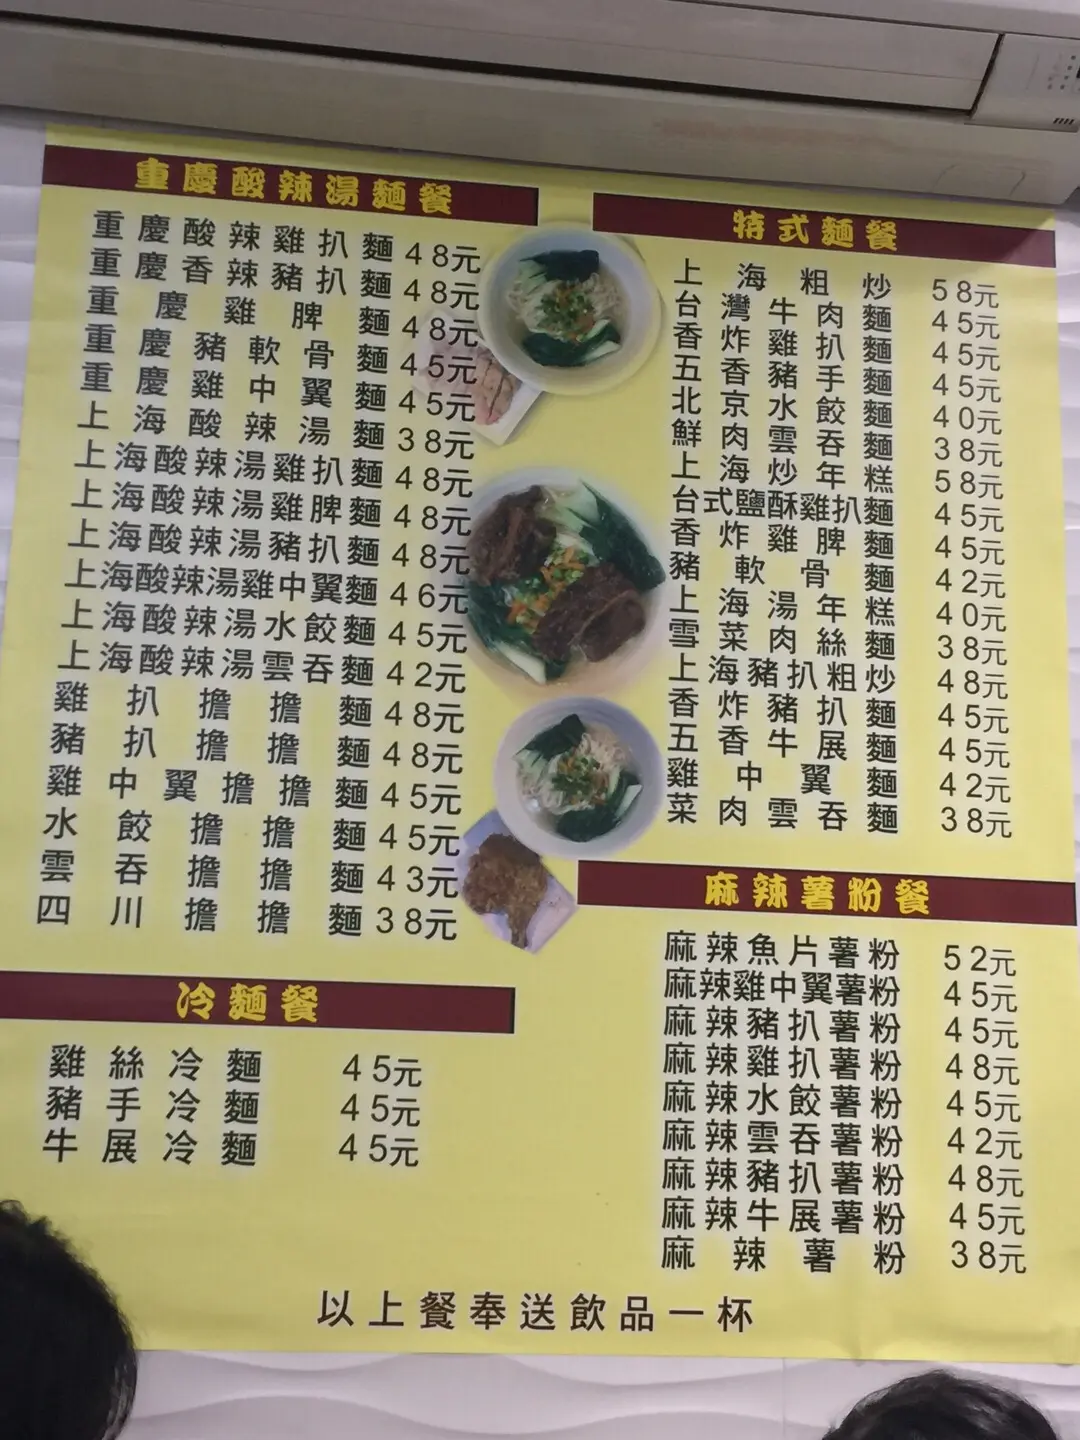 重慶酸辣湯麵餐
重慶酸辣雞扒麵 48元
重慶香辣豬扒麵 48元
重慶雞脾麵 48元
重慶豬軟骨麵 45元
重慶雞中翼麵 45元
上海酸辣湯麵 38元
上海酸辣湯雞扒麵 48元
上海酸辣湯雞脾麵 48元
上海酸辣湯豬扒麵 48元
上海酸辣湯雞中翼麵 46元
上海酸辣湯水餃麵 45元
上海酸辣湯雲吞麵 42元
雞扒擔擔麵 48元
豬扒擔擔麵 48元
雞中翼擔擔麵 45元
水餃擔擔麵 45元
雲吞擔擔麵 43元
四川擔擔麵 38元
冷麵餐
雞絲冷麵 45元
豬手冷麵 45元
牛展冷麵 45元
特式麵餐
上海粗炒 58元
台灣牛肉麵 45元
香炸雞扒麵 45元
五香豬手麵 45元
北京水餃麵 40元
鮮肉雲吞麵 38元
上海炒年糕 58元
台式鹽酥雞扒麵 45元
香炸雞脾麵 45元
豬軟骨麵 42元
上海湯年糕 40元
雪菜肉絲麵 38元
上海豬扒粗炒 48元
香炸豬扒麵 45元
五香牛展麵 45元
雞中翼麵 42元
菜肉雲吞麵 38元
麻辣薯粉餐
麻辣魚片薯粉 52元
麻辣雞中翼薯粉 45元
麻辣豬扒薯粉 45元
麻辣雞扒薯粉 48元
麻辣水餃薯粉 45元
麻辣雲吞薯粉 42元
麻辣豬扒薯粉 48元
麻辣牛展薯粉 45元
麻辣薯粉 38元
以上餐奉送飲品一杯